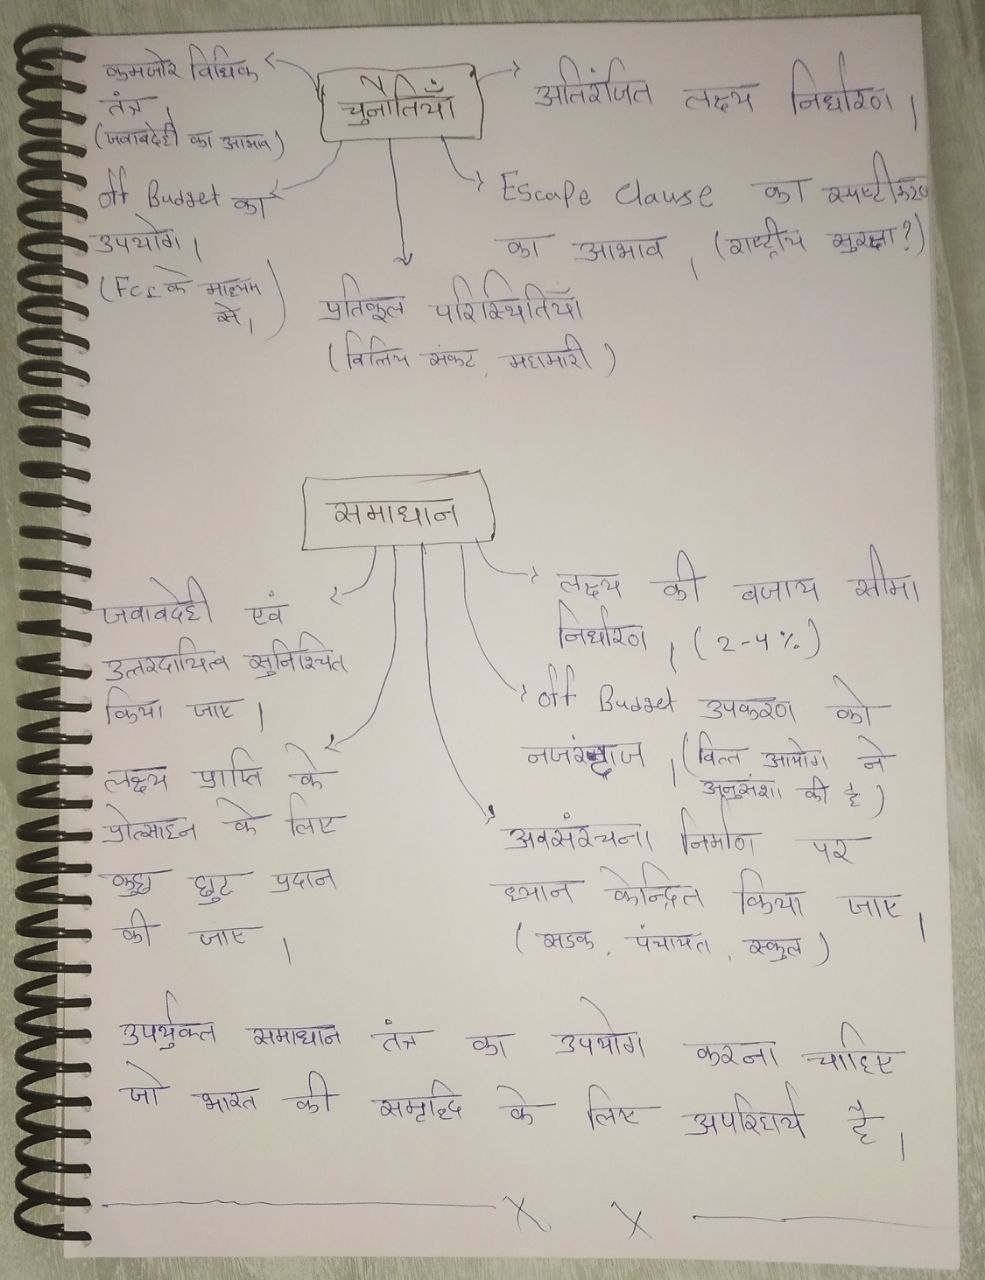 चुनौतियाँ
कमजोर विधिक
तंत्र,
(जवाबदेही का आभाव)
off Budget का
उपयोग।
(FCI के माध्यम
से।)
अतिरंजित लक्ष्य निर्धारण।
Escape Clause का स्पष्टीकरण
का आभाव, (राष्ट्रीय सुरक्षा?)
प्रतिकूल परिस्थितियाँ
(वित्तिय संकट, महामारी)
समाधान
जवाबदेही एवं
उत्तरदायित्व सुनिश्चित
किया जाए।
लक्ष्य प्राप्ति के
प्रोत्साहन के लिए
कुछ छुट प्रदान
की जाए।
लक्ष्य की बजाय सीमा
निर्धारण, (2-4%)
off Budget उपकरण को
नजरंदाज, (वित्त आयोग ने
अनुसंशा की है)
अवसंरचना निर्माण पर
ध्यान केन्द्रित किया जाए।
(सडक, पंचायत, स्कुल)
उपर्युक्त समाधान तंत्र का उपयोग करना चाहिए
जो भारत की समृद्दि के लिए अपरिहार्य है।
X X